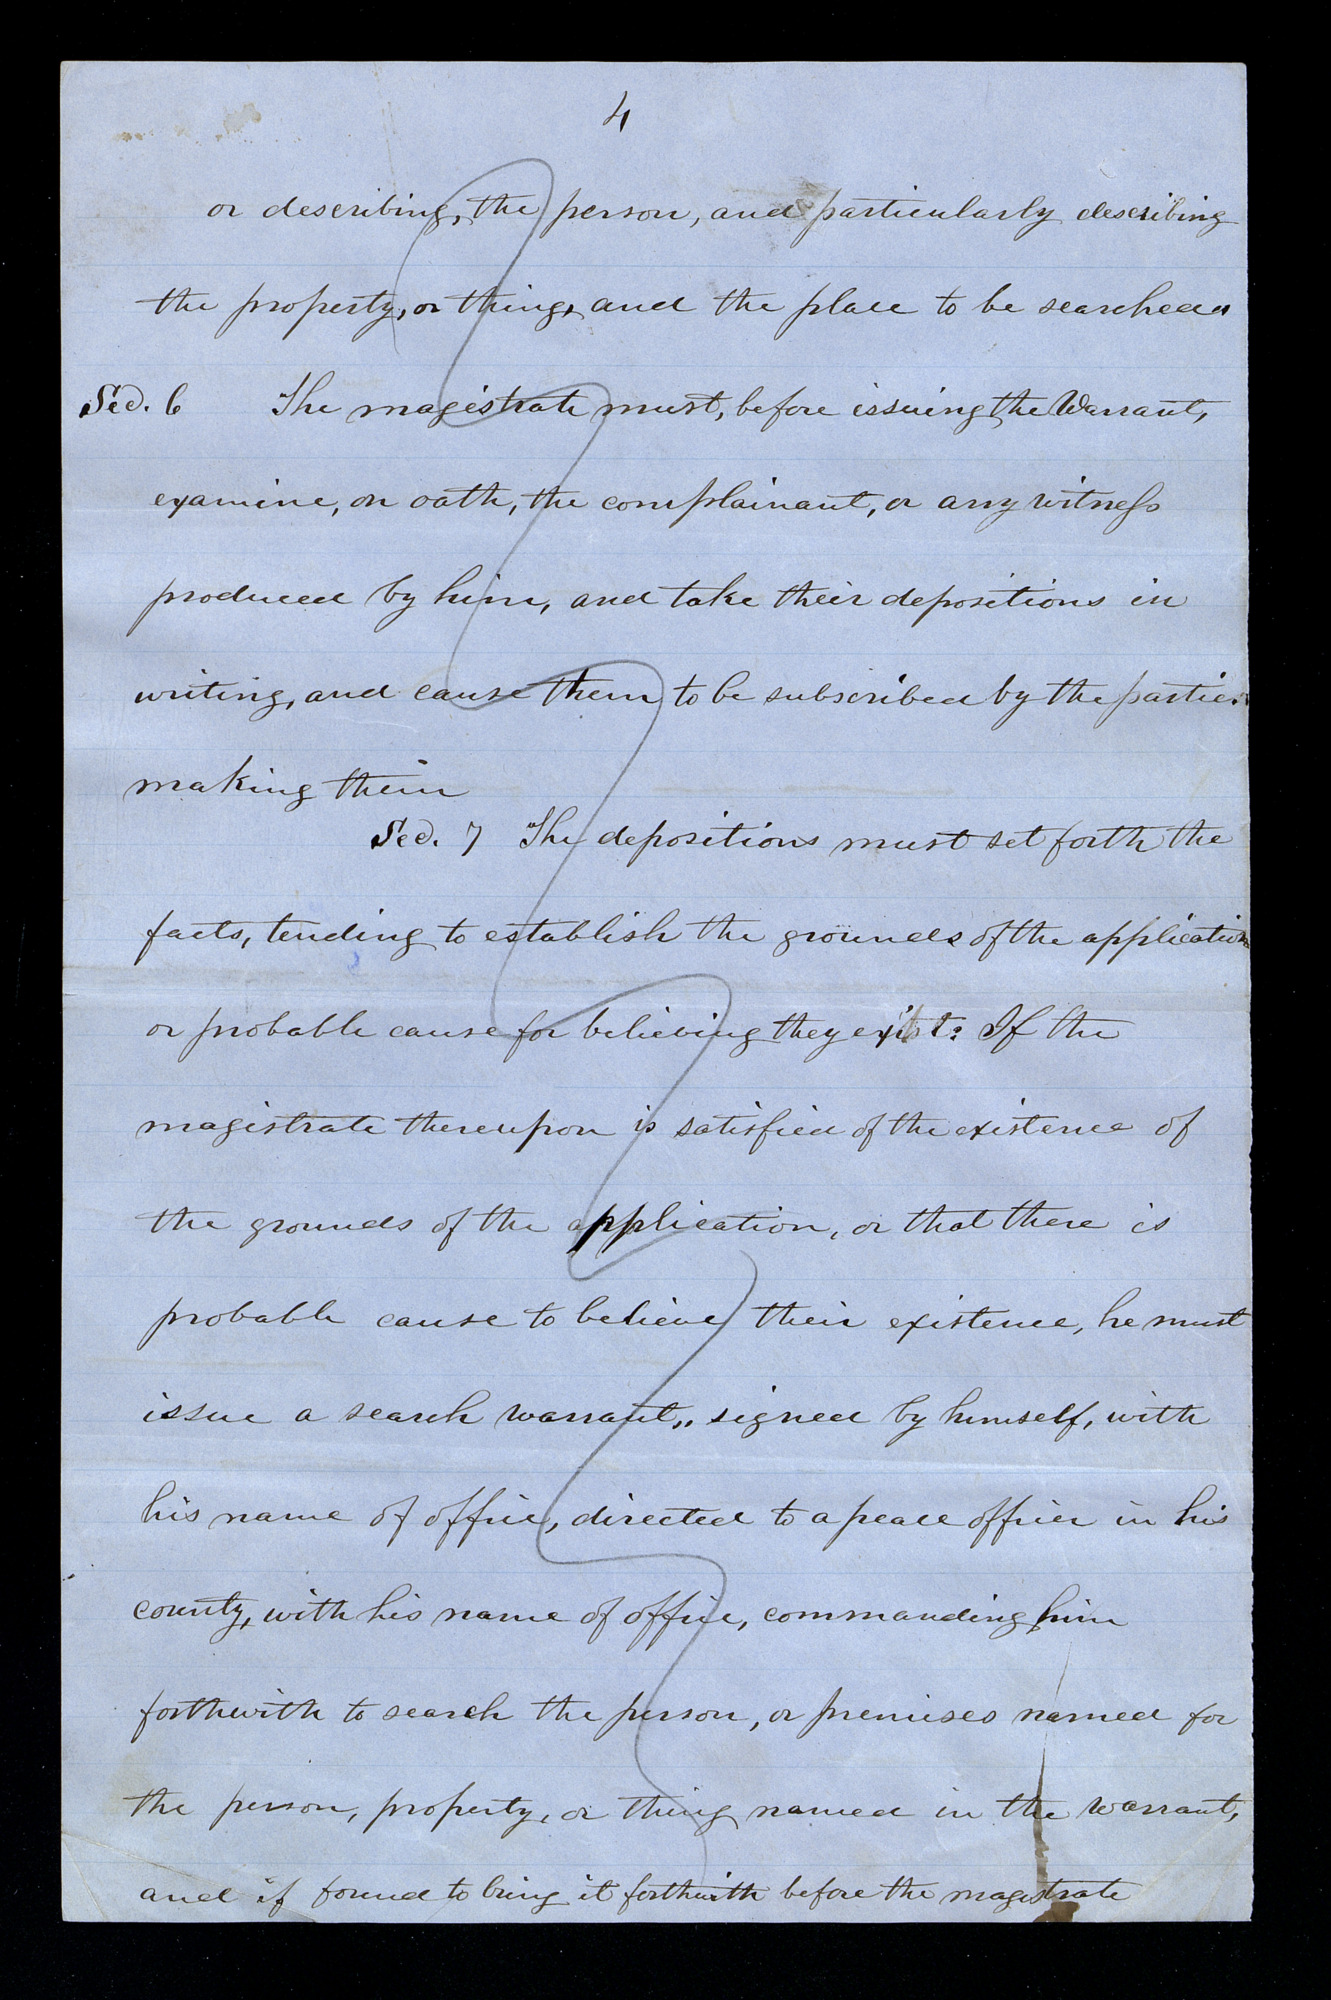 4
or describing, the person, and particularly describing
the property, or thing, and the place to be searched.
Sec. 6 The magistrate must, before issuing the Warrant,
examine, on oath, the complainant, or any witness
produced by him, and take their depositions in
writing, and cause them to be subscribed by the parties
making them
Sec. 7 The depositions must set forth the
facts, tending to establish the grounds of the application
or probable cause for believing they exist: If the
magistrate thereupon is satisfied of the existence of
the grounds of the application, or that there is
probable cause to believe their existence, he must
issue a search warrant,, signed by himself, with
his name of office, directed to a peace officer in his
county, with his name of office, commanding him
forthwith to search the person, or premises named for
the person, property, or thing named in the warrant,
and if found to bring it forthwith before the magistrate